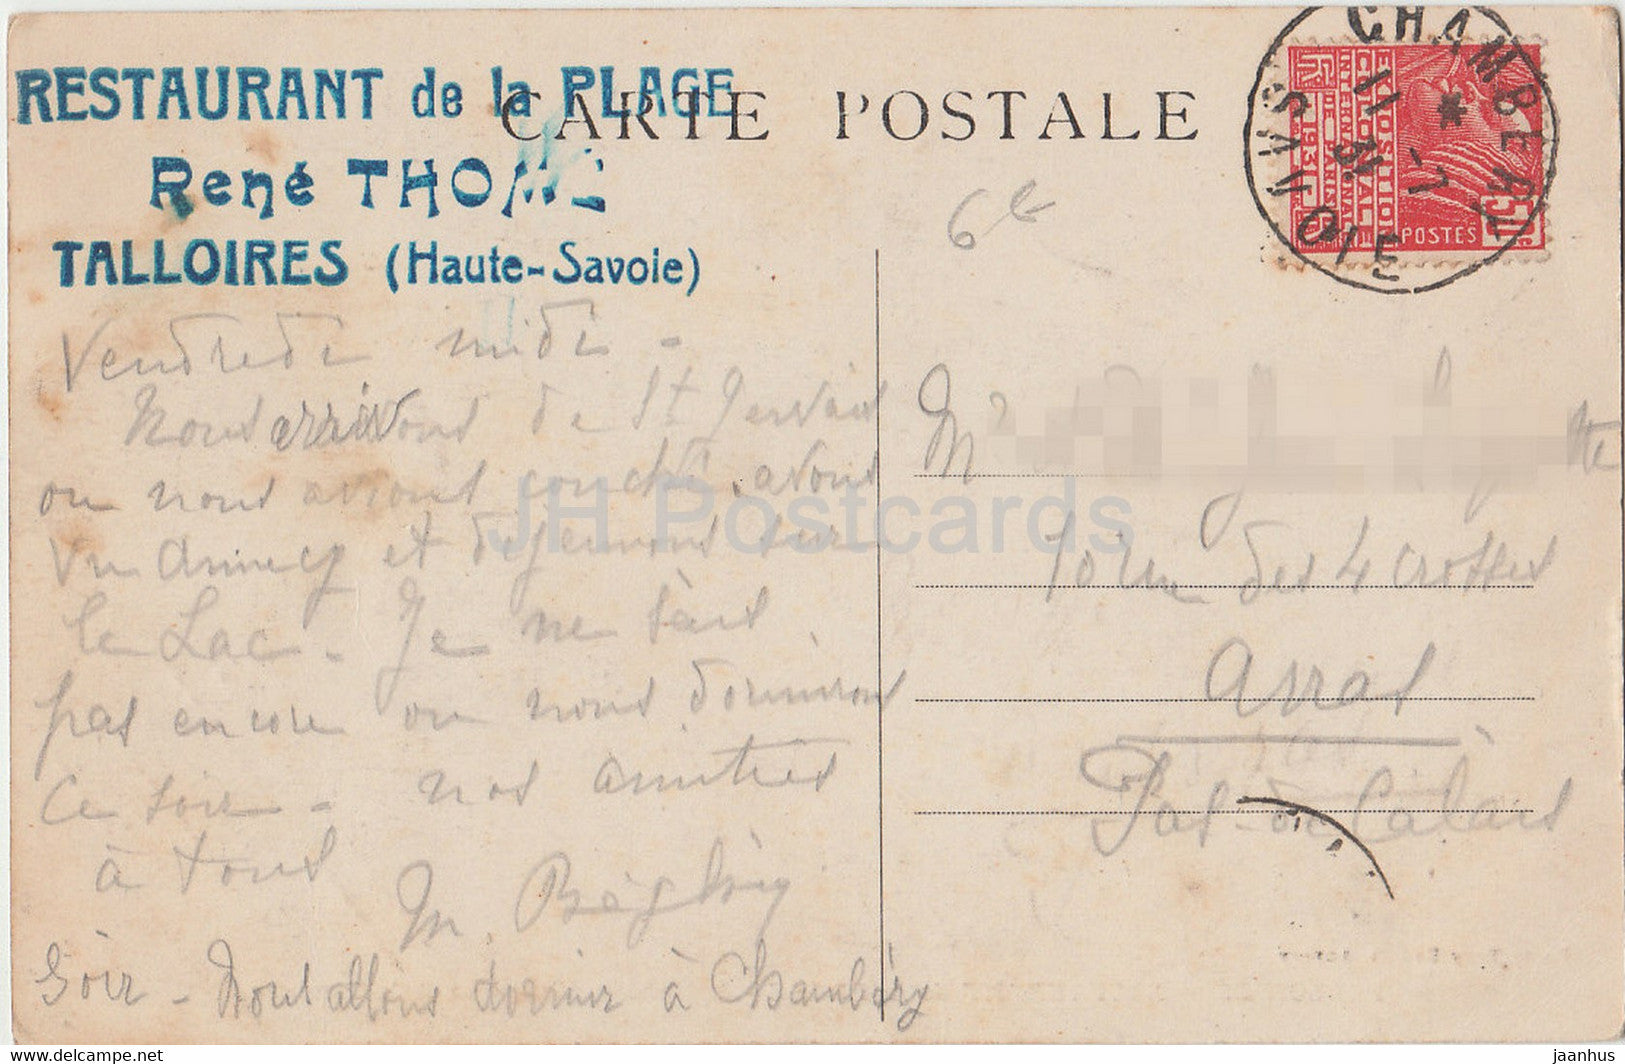 RESTAURANT de la PLAGE
René THOME
TALLOIRES (Haute-Savoie)
CARTE POSTALE
CHAMBERY
11 -7
31
SAVOIE
EXPOSITION
COLONIALE
INTERNATIONALE
PARIS 1931
RF
POSTES
50c
6 €
Vendredi midi -
Nous arrivons de St Gervais
ou nous avions couché, avons
vu Annecy et déjeunons sur
le Lac - Je ne sais
pas encore ou nous dormirons
ce soir - nos amitiés
à tous
M.
Soir - Nous allons dormir à Chambéry
M
tte
10 rue des 4 Crosses
Arras
Pas-de-Calais
JH Postcards
www.delcampe.net
jaanhus